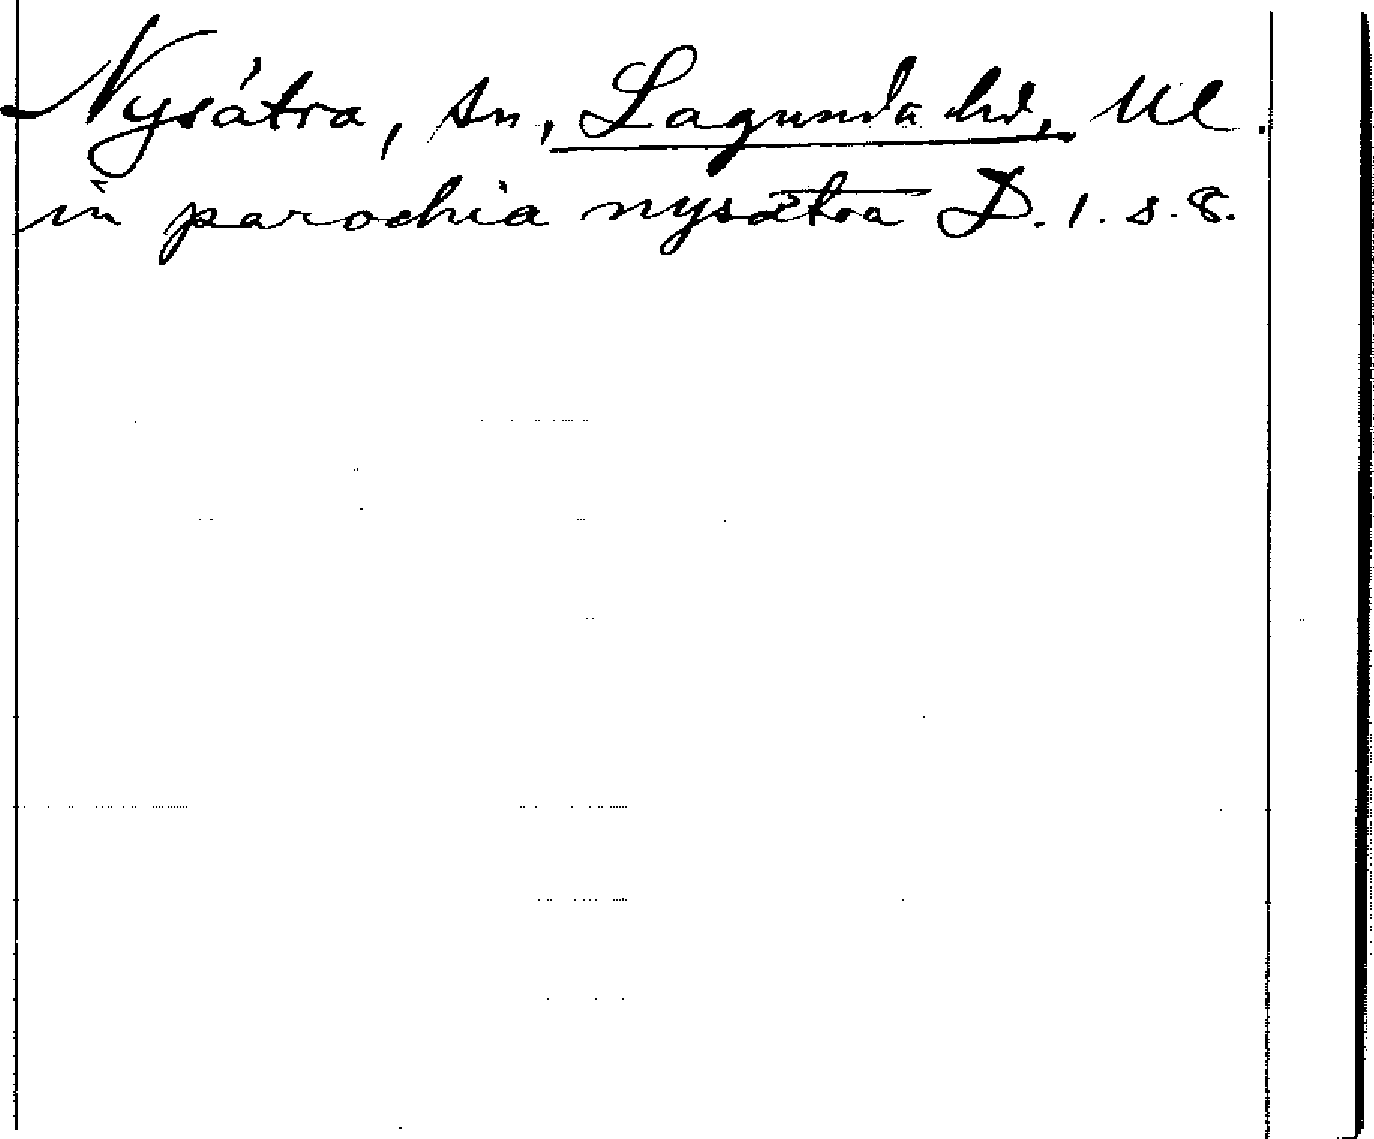 Nysátra, sn, Lagunda hd, Ul.
in parochia nysætra D. 1. s. 8.